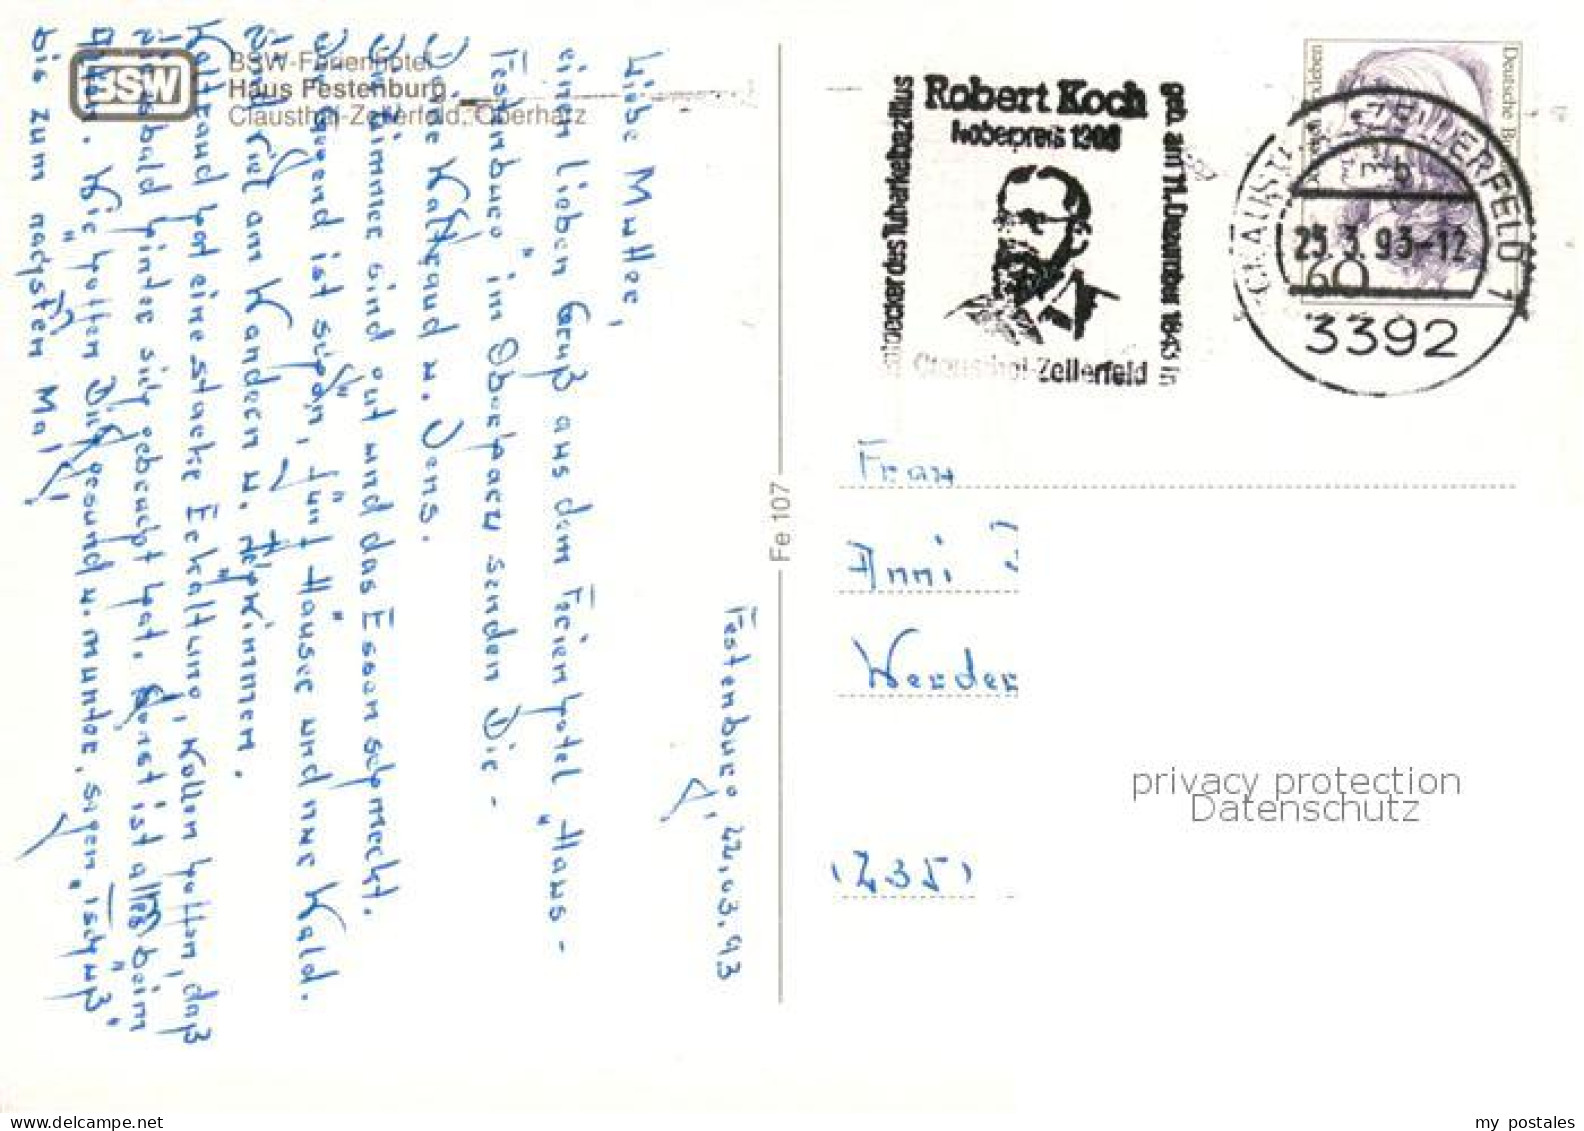 BSW
BSW-Ferienhotel
Haus Festenburg
Clausthal-Zellerfeld, Oberharz
Festenburg, 22.03.93
Liebe Mutter,
einen lieben Gruß aus dem Ferienhotel „Haus-
Festenburg" im Oberharz senden Dir -
Deine Kaltraud u. Jens.
Die Zimmer sind gut und das Essen schmeckt.
Die Gegend ist schön, fünf Häuser und nur Wald.
Sind viel am Wandern u.
Kaltraud hat eine starke Erkältung, wollen hoffen, daß
sie es bald hinter sich gebracht hat. Sonst ist alles beim
Alten. Wir hoffen Dich gesund u. munter. sagen „Tschüß"
bis zum nächsten Mal!
Fe 107
Entdecker des Tuberkelbazillus
Robert Koch
Nobelpreis 1905
geb. am 11. Dezember 1843 in
Clausthal-Zellerfeld
Deutsche
60
CLAUSTHAL-ZELLERFELD 1
mb
23.3.93-12
3392
Frau
Anni
Werder
privacy protection
Datenschutz
my postales